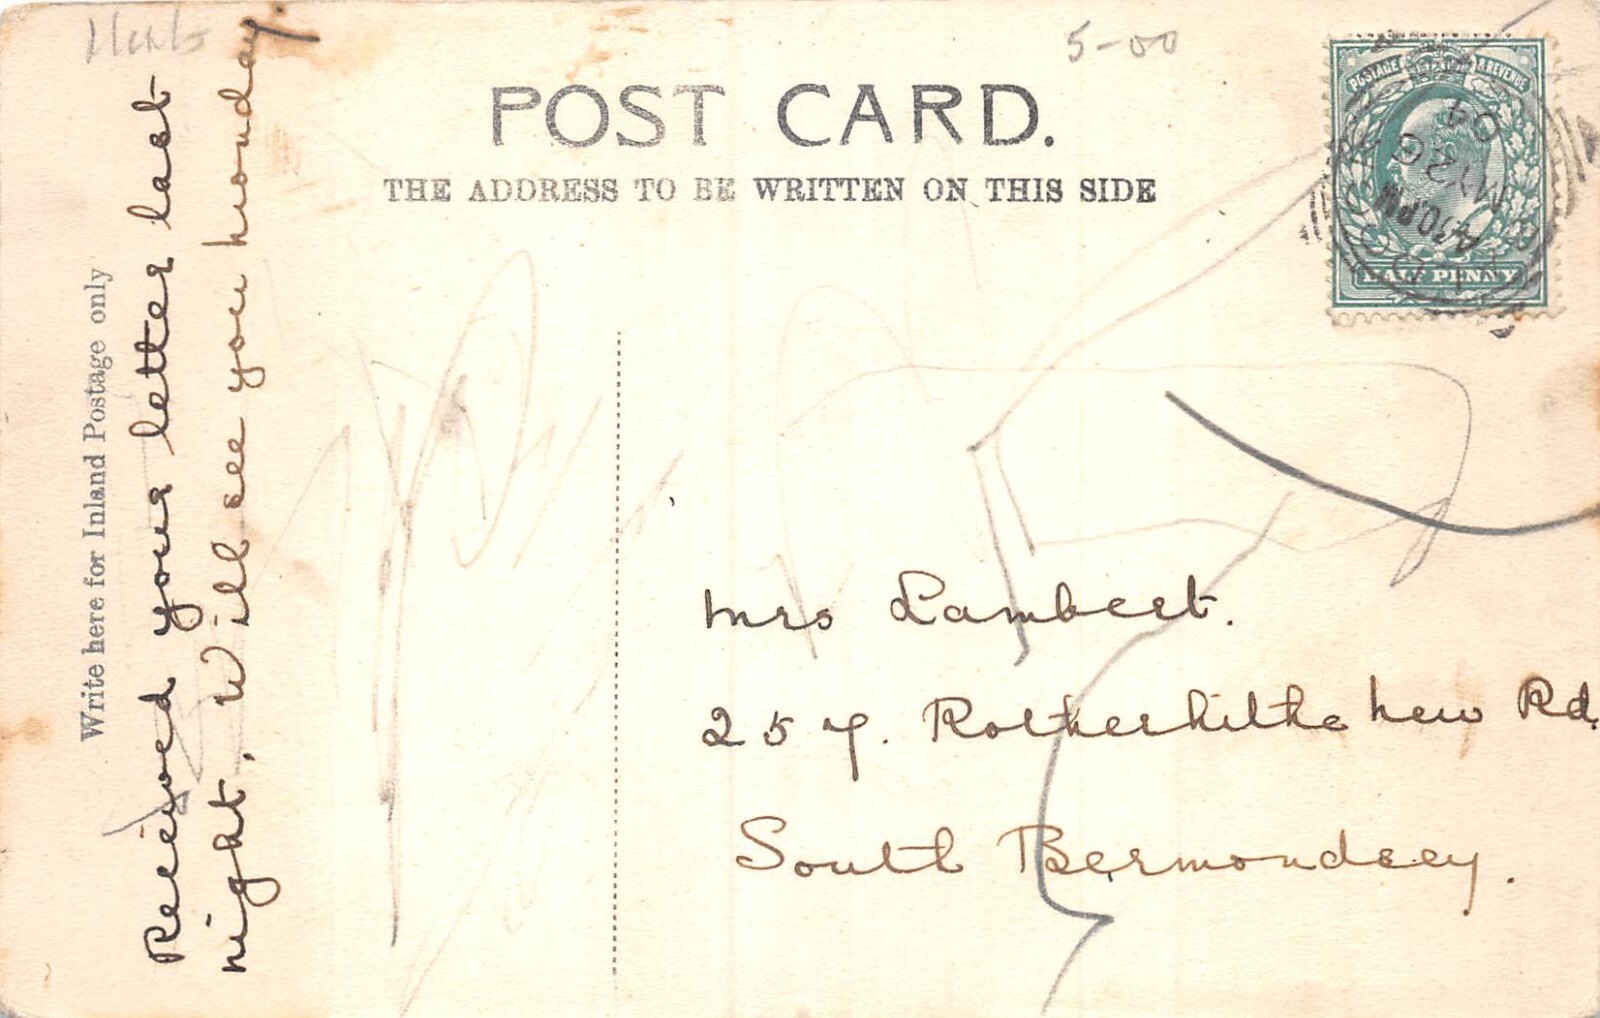 Herts
5-00
POST CARD.
THE ADDRESS TO BE WRITTEN ON THIS SIDE
POSTAGE & REVENUE
HALF PENNY
4.10PM
MY 3
04
Write here for Inland Postage only
Received your letter last
night, Will see you Monday.
Mrs Lambert.
257. Rotherhithe New Rd.
South Bermondsey.